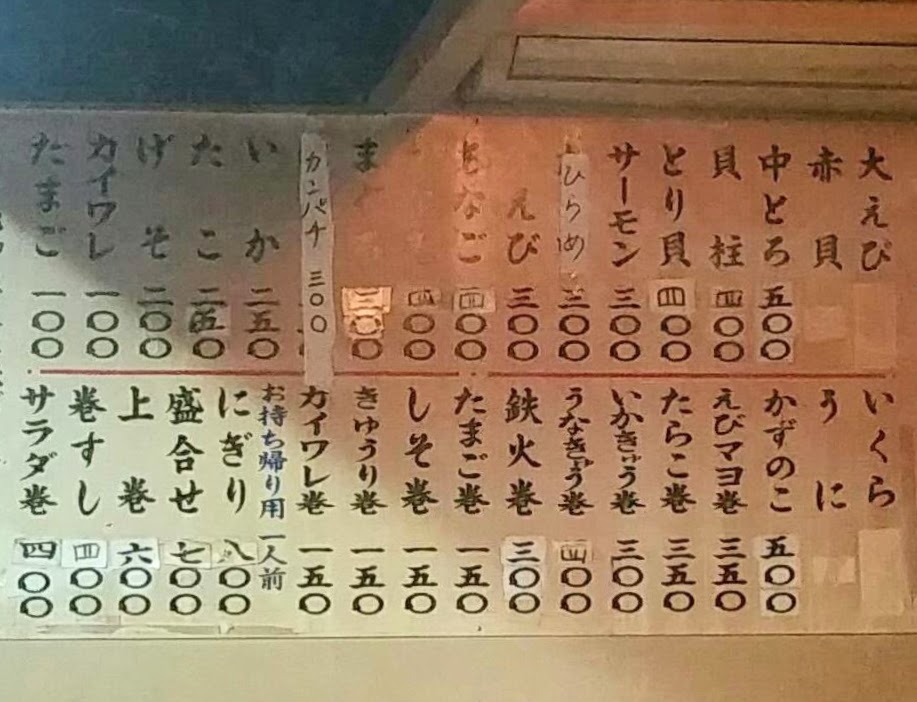 大えび
赤貝
中とろ 五〇〇
貝柱 四〇〇
とり貝 四〇〇
サーモン 三〇〇
ひらめ 三〇〇
えび 三〇〇
なご 四〇〇
四〇〇
ま 三〇〇
カンパチ 三〇〇
いか 二五〇
たこ 二五〇
げそ 二〇〇
カイワレ 一〇〇
たまご 一〇〇
いくら
うに
かずのこ 五〇〇
えびマヨ巻 三五〇
たらこ巻 三五〇
いかきゅう巻 三〇〇
うなきゅう巻 四〇〇
鉄火巻 三〇〇
たまご巻 一五〇
しそ巻 一五〇
きゅうり巻 一五〇
カイワレ巻 一五〇
お持ち帰り用 一人前
にぎり 八〇〇
盛合せ 七〇〇
上巻 六〇〇
巻すし 四〇〇
サラダ巻 四〇〇